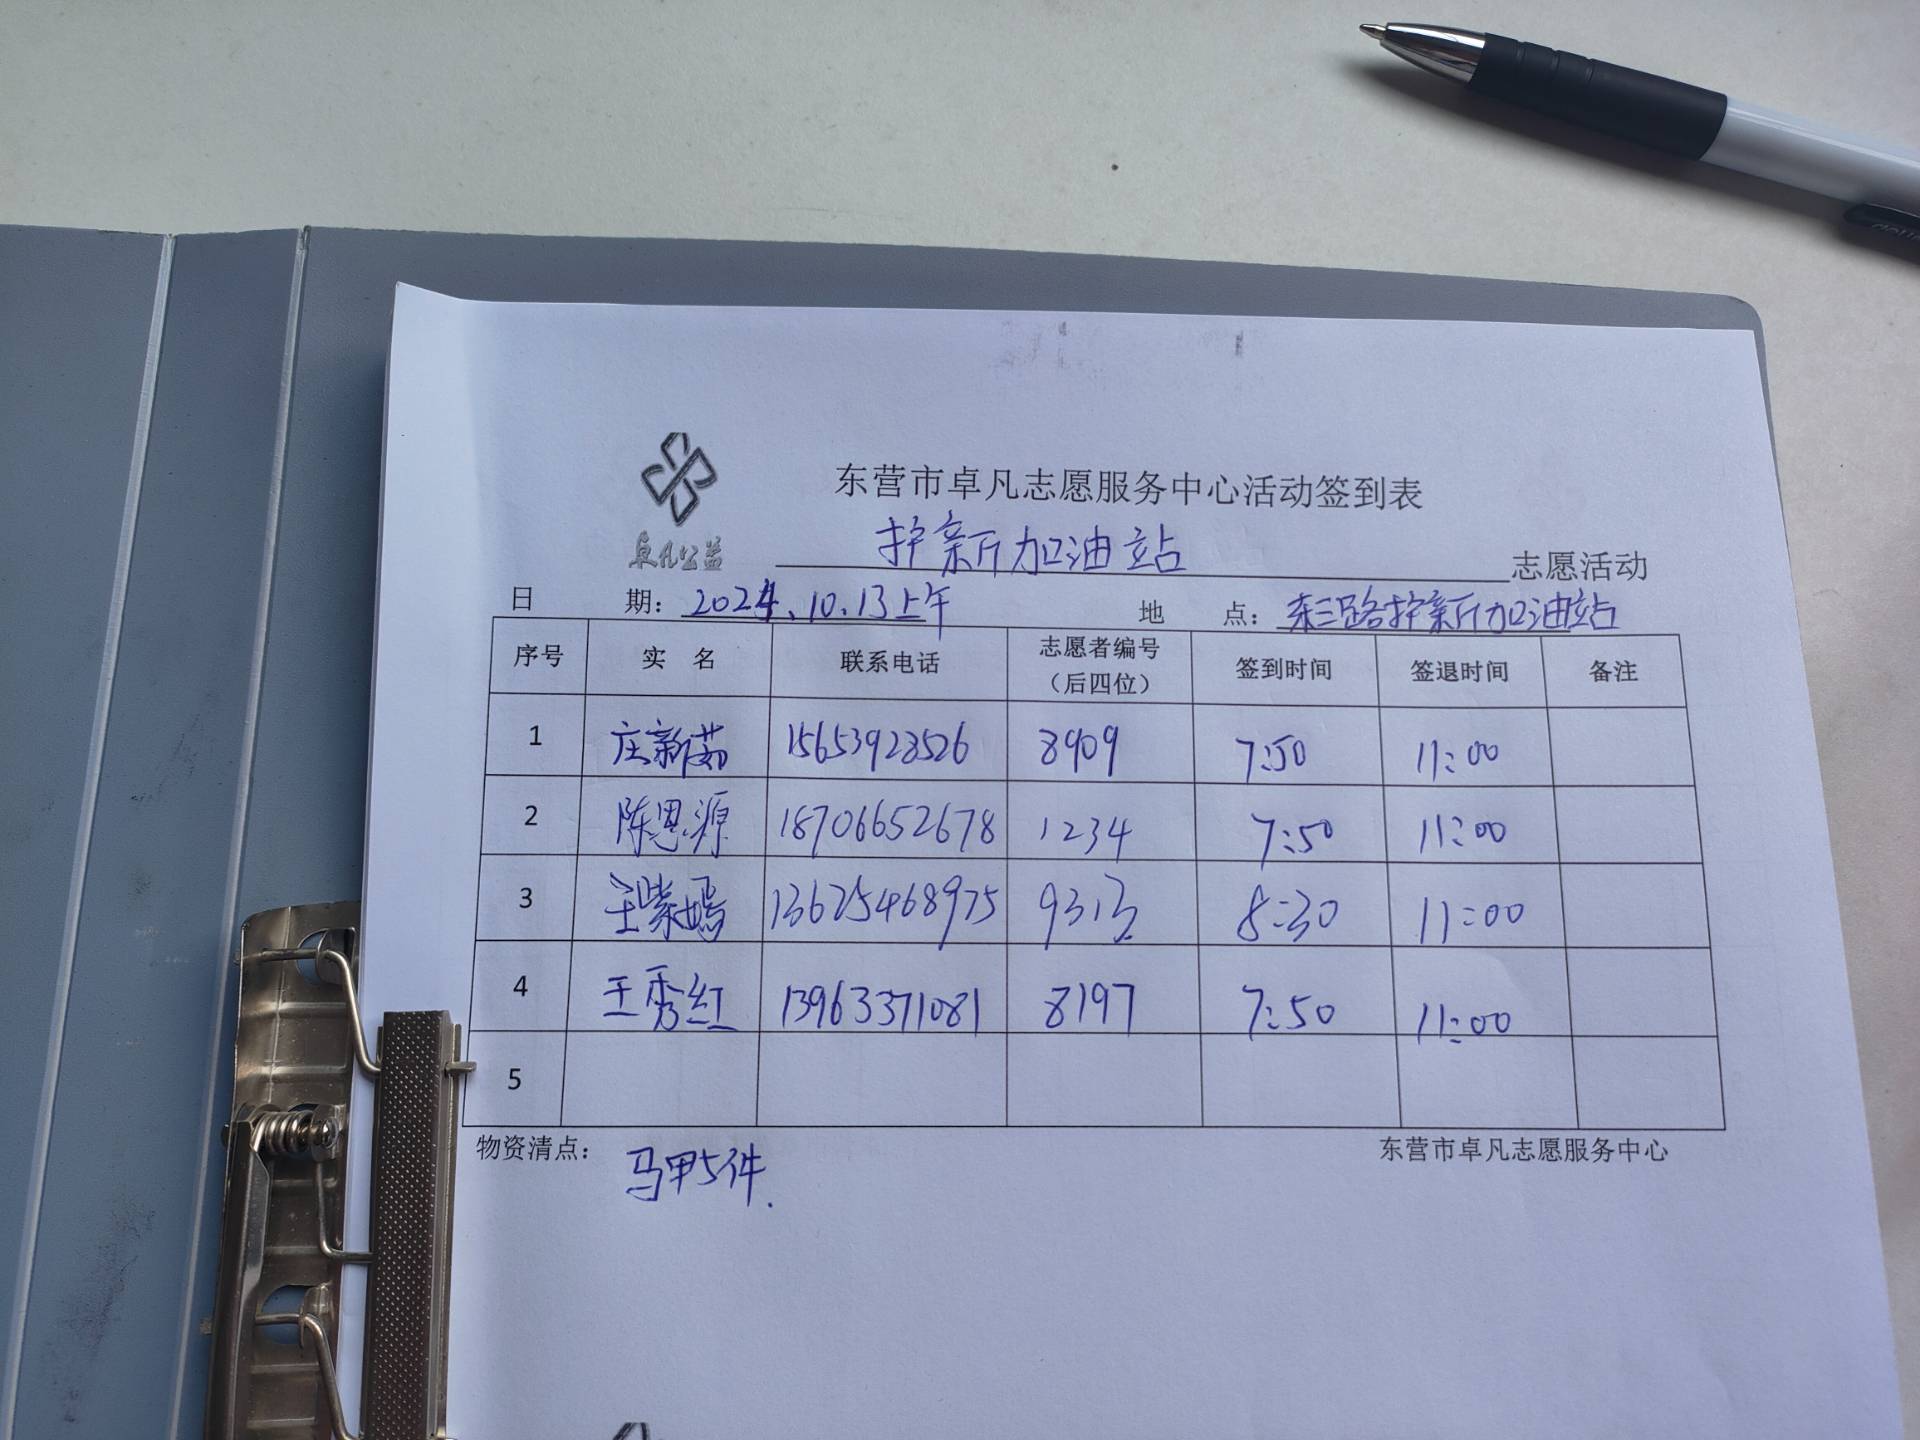 东营市卓凡志愿服务中心活动签到表
卓凡公益
护新加油站 志愿活动
日 期: 2024.10.13上午 地 点: 东三路护新加油站
序号 实 名 联系电话 志愿者编号（后四位） 签到时间 签退时间 备注
1 庄新茹 15653928526 8909 7:50 11:00
2 陈思源 18706652678 1234 7:50 11:00
3 王紫嫣 13625468975 9313 8:30 11:00
4 王秀红 13963371081 8197 7:50 11:00
5
物资清点: 马甲5件. 东营市卓凡志愿服务中心